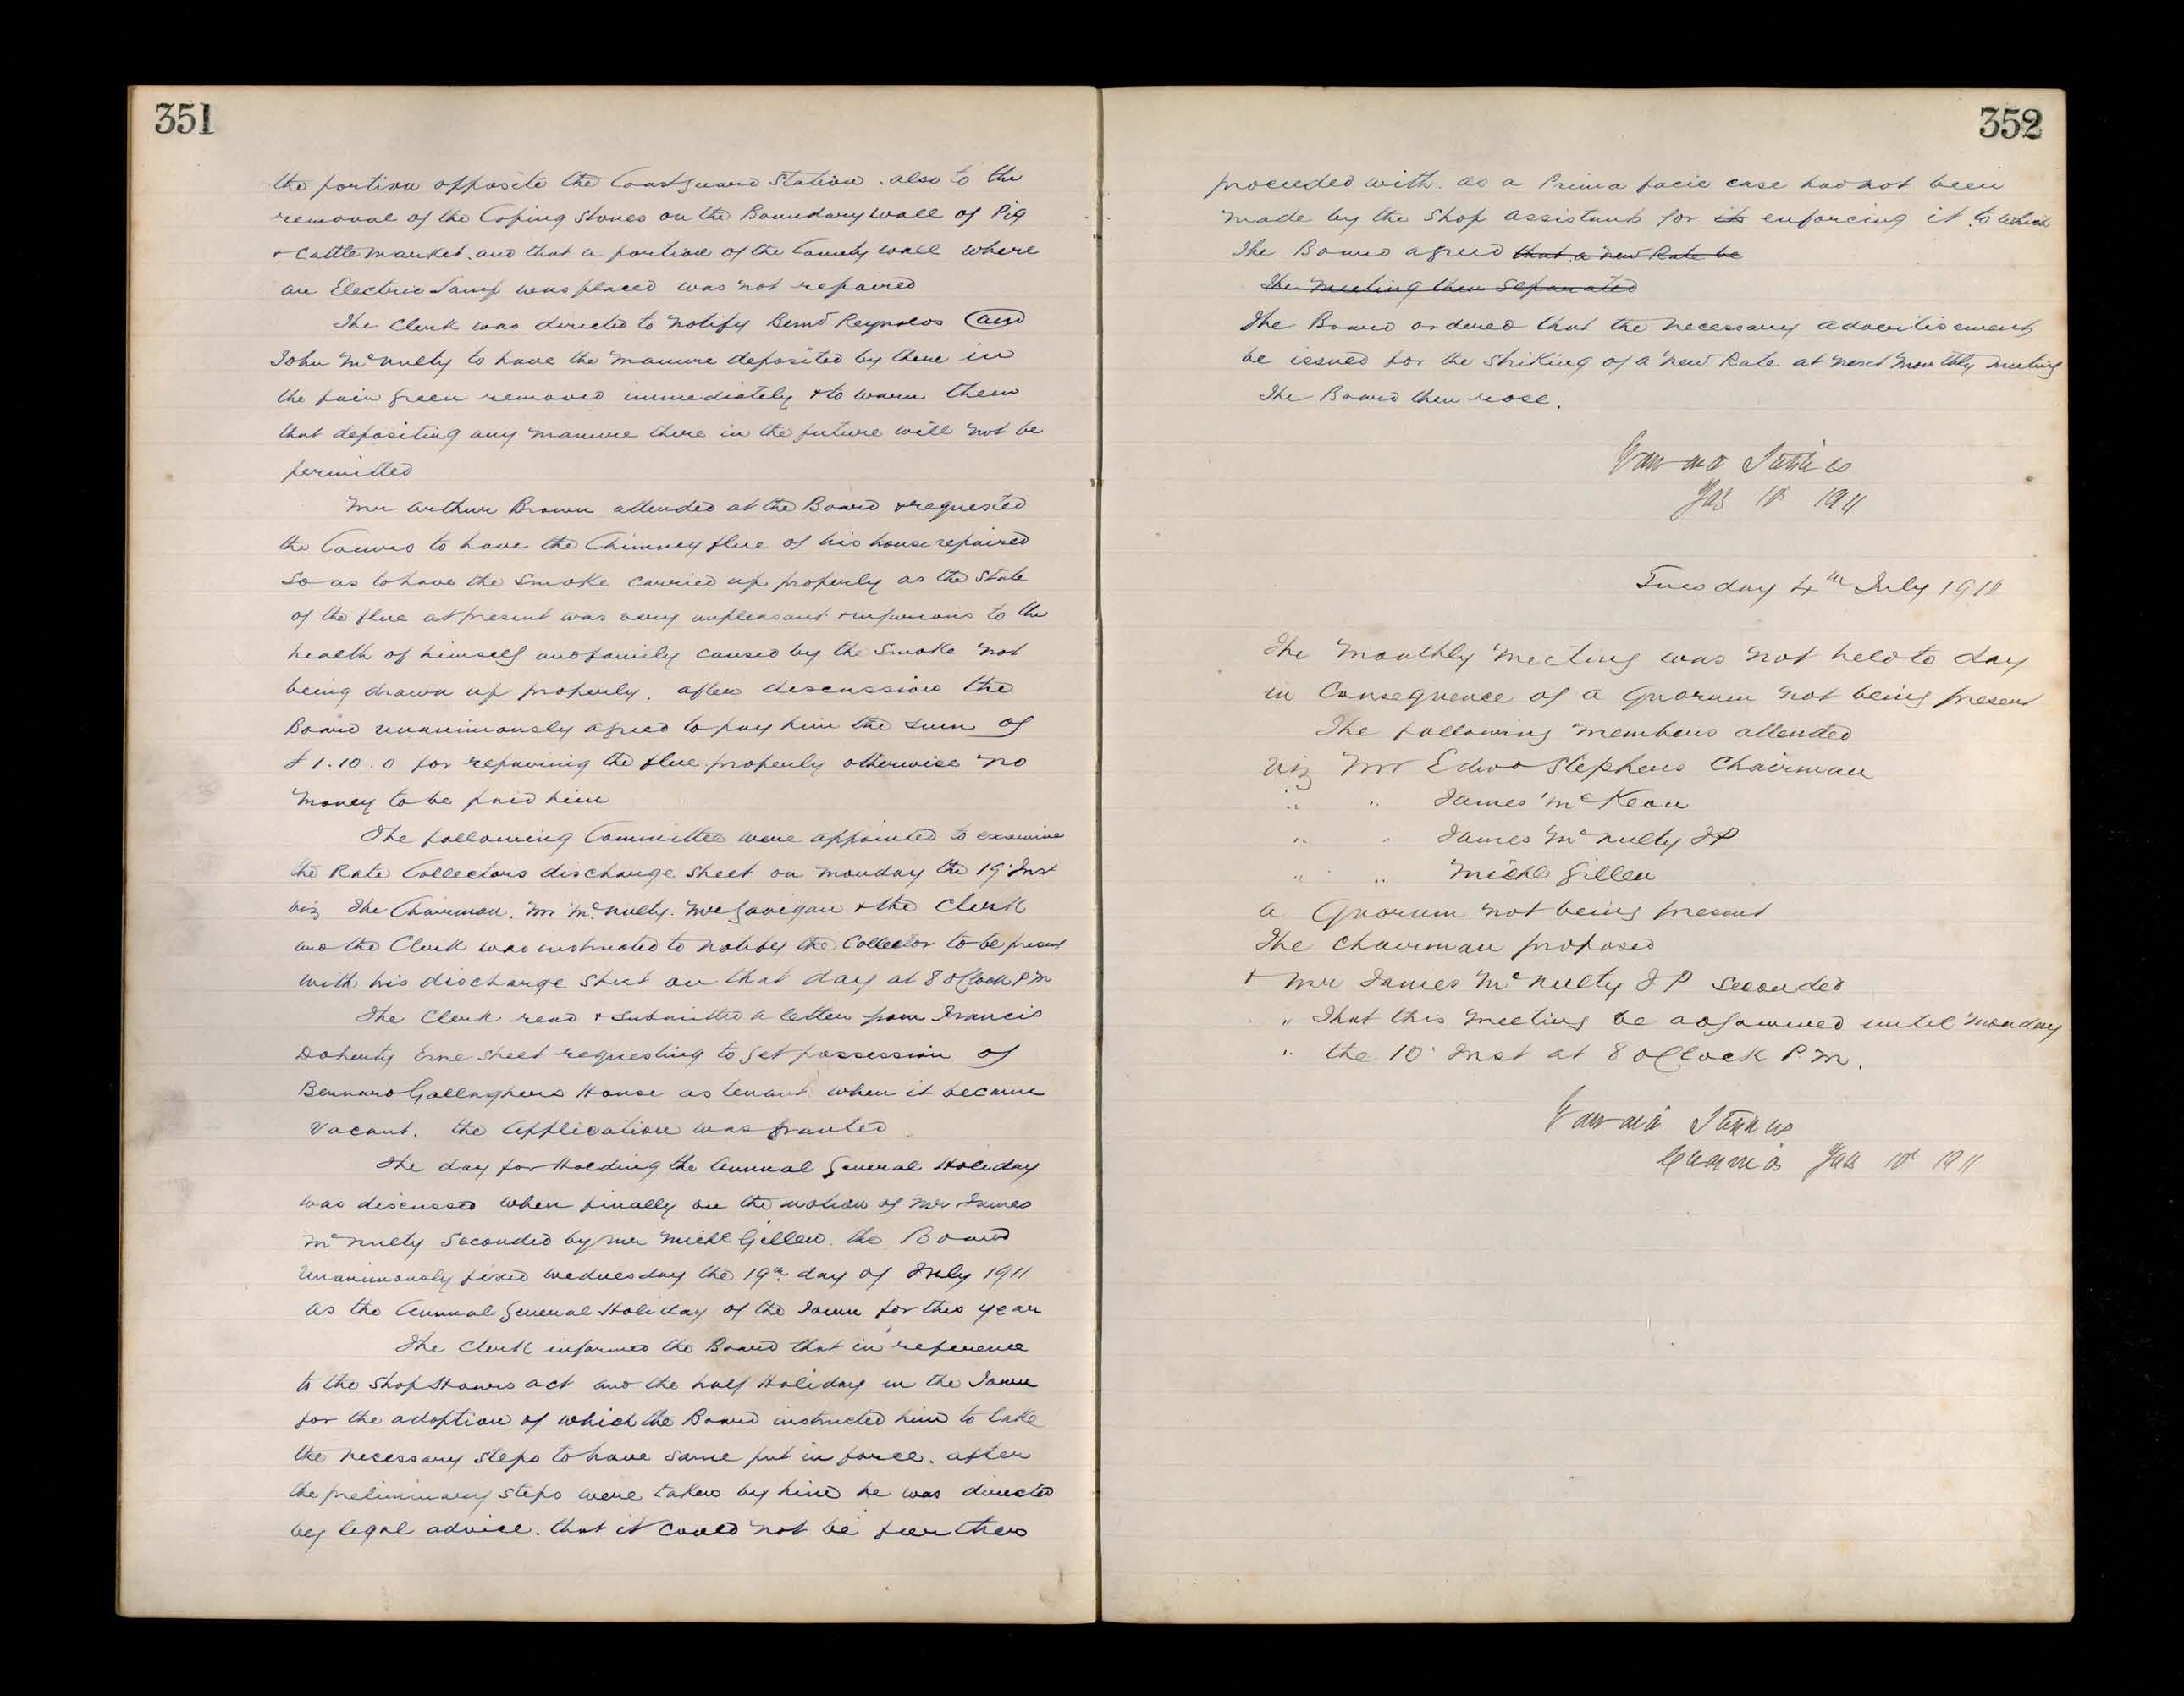 351
the portion opposite the Coastguard Station. also to the
removal of the Coping Stones on the Boundary wall of Pig
+ Cattle market. and that a portion of the County wall where
an Electric Lamp was placed was not repaired
The Clerk was directed to notify Bernd Reynolds and
John McNulty to have the manure deposited by them in
the fair green removed immediately & to warn them
that depositing any manure there in the future will not be
permitted
Mr Arthur Brown attended at the Board & requested
the Comrs to have the Chimney flue of his house repaired
so as to have the Smoke carried up properly as the State
of the flue at present was very unpleasant & injurious to the
health of himself and family caused by the Smoke not
being drawn up properly. after discussion the
Board unanimously agreed to pay him the sum of
£1.10.0 for repairing the flue properly otherwise no
money to be paid him
The following Committee were appointed to examine
the Rate Collectors discharge Sheet on Monday the 19 Inst
viz The Chairman. Mr McNulty. Mr Gavigan & the Clerk
and the Clerk was instructed to notify the Collector to be present
with his discharge Sheet on that day at 8 oClock P.M
The Clerk read & submitted a letter from Francis
Doherty Erne Street requesting to get possession of
Bernard Gallaghers House as tenant when it became
vacant. the Application was granted
The day for Holding the Annual General Holiday
was discussed when finally on the motion of Mr James
McNulty Seconded by Mr Michl Gillen. the Board
Unanimously fixed Wednesday the 19th day of July 1911
as the Annual General Holiday of the Town for this year
The Clerk informed the Board that in reference
to the Shop Hours act and the half Holiday in the Town
for the adoption of which the Board instructed him to take
the necessary steps to have same put in force. after
the preliminary steps were taken by him he was directed
by legal advice. that it could not be further
352
proceeded with. as a Prima facie case had not been
made by the Shop Assistants for it enforcing it. to which
The Board agreed that a new Rate be
The Meeting then Separated
The Board ordered that the necessary advertisements
be issued for the Striking of a new Rate at next Monthly meeting
The Board then rose.
10th 1911
Tuesday 4th July 1911
The Monthly Meeting was not held to day
in Consequence of a Quorum not being present
The following members attended
viz Mr Edwd Stephens Chairman
" " James McKeon
" " James McNulty JP
" " Michl Gillen
a Quorum not being present
The Chairman proposed
+ Mr James McNulty JP Seconded
" That this Meeting be adjourned until Monday
" the 10 Inst at 8 oClock P.M.
10th 1911